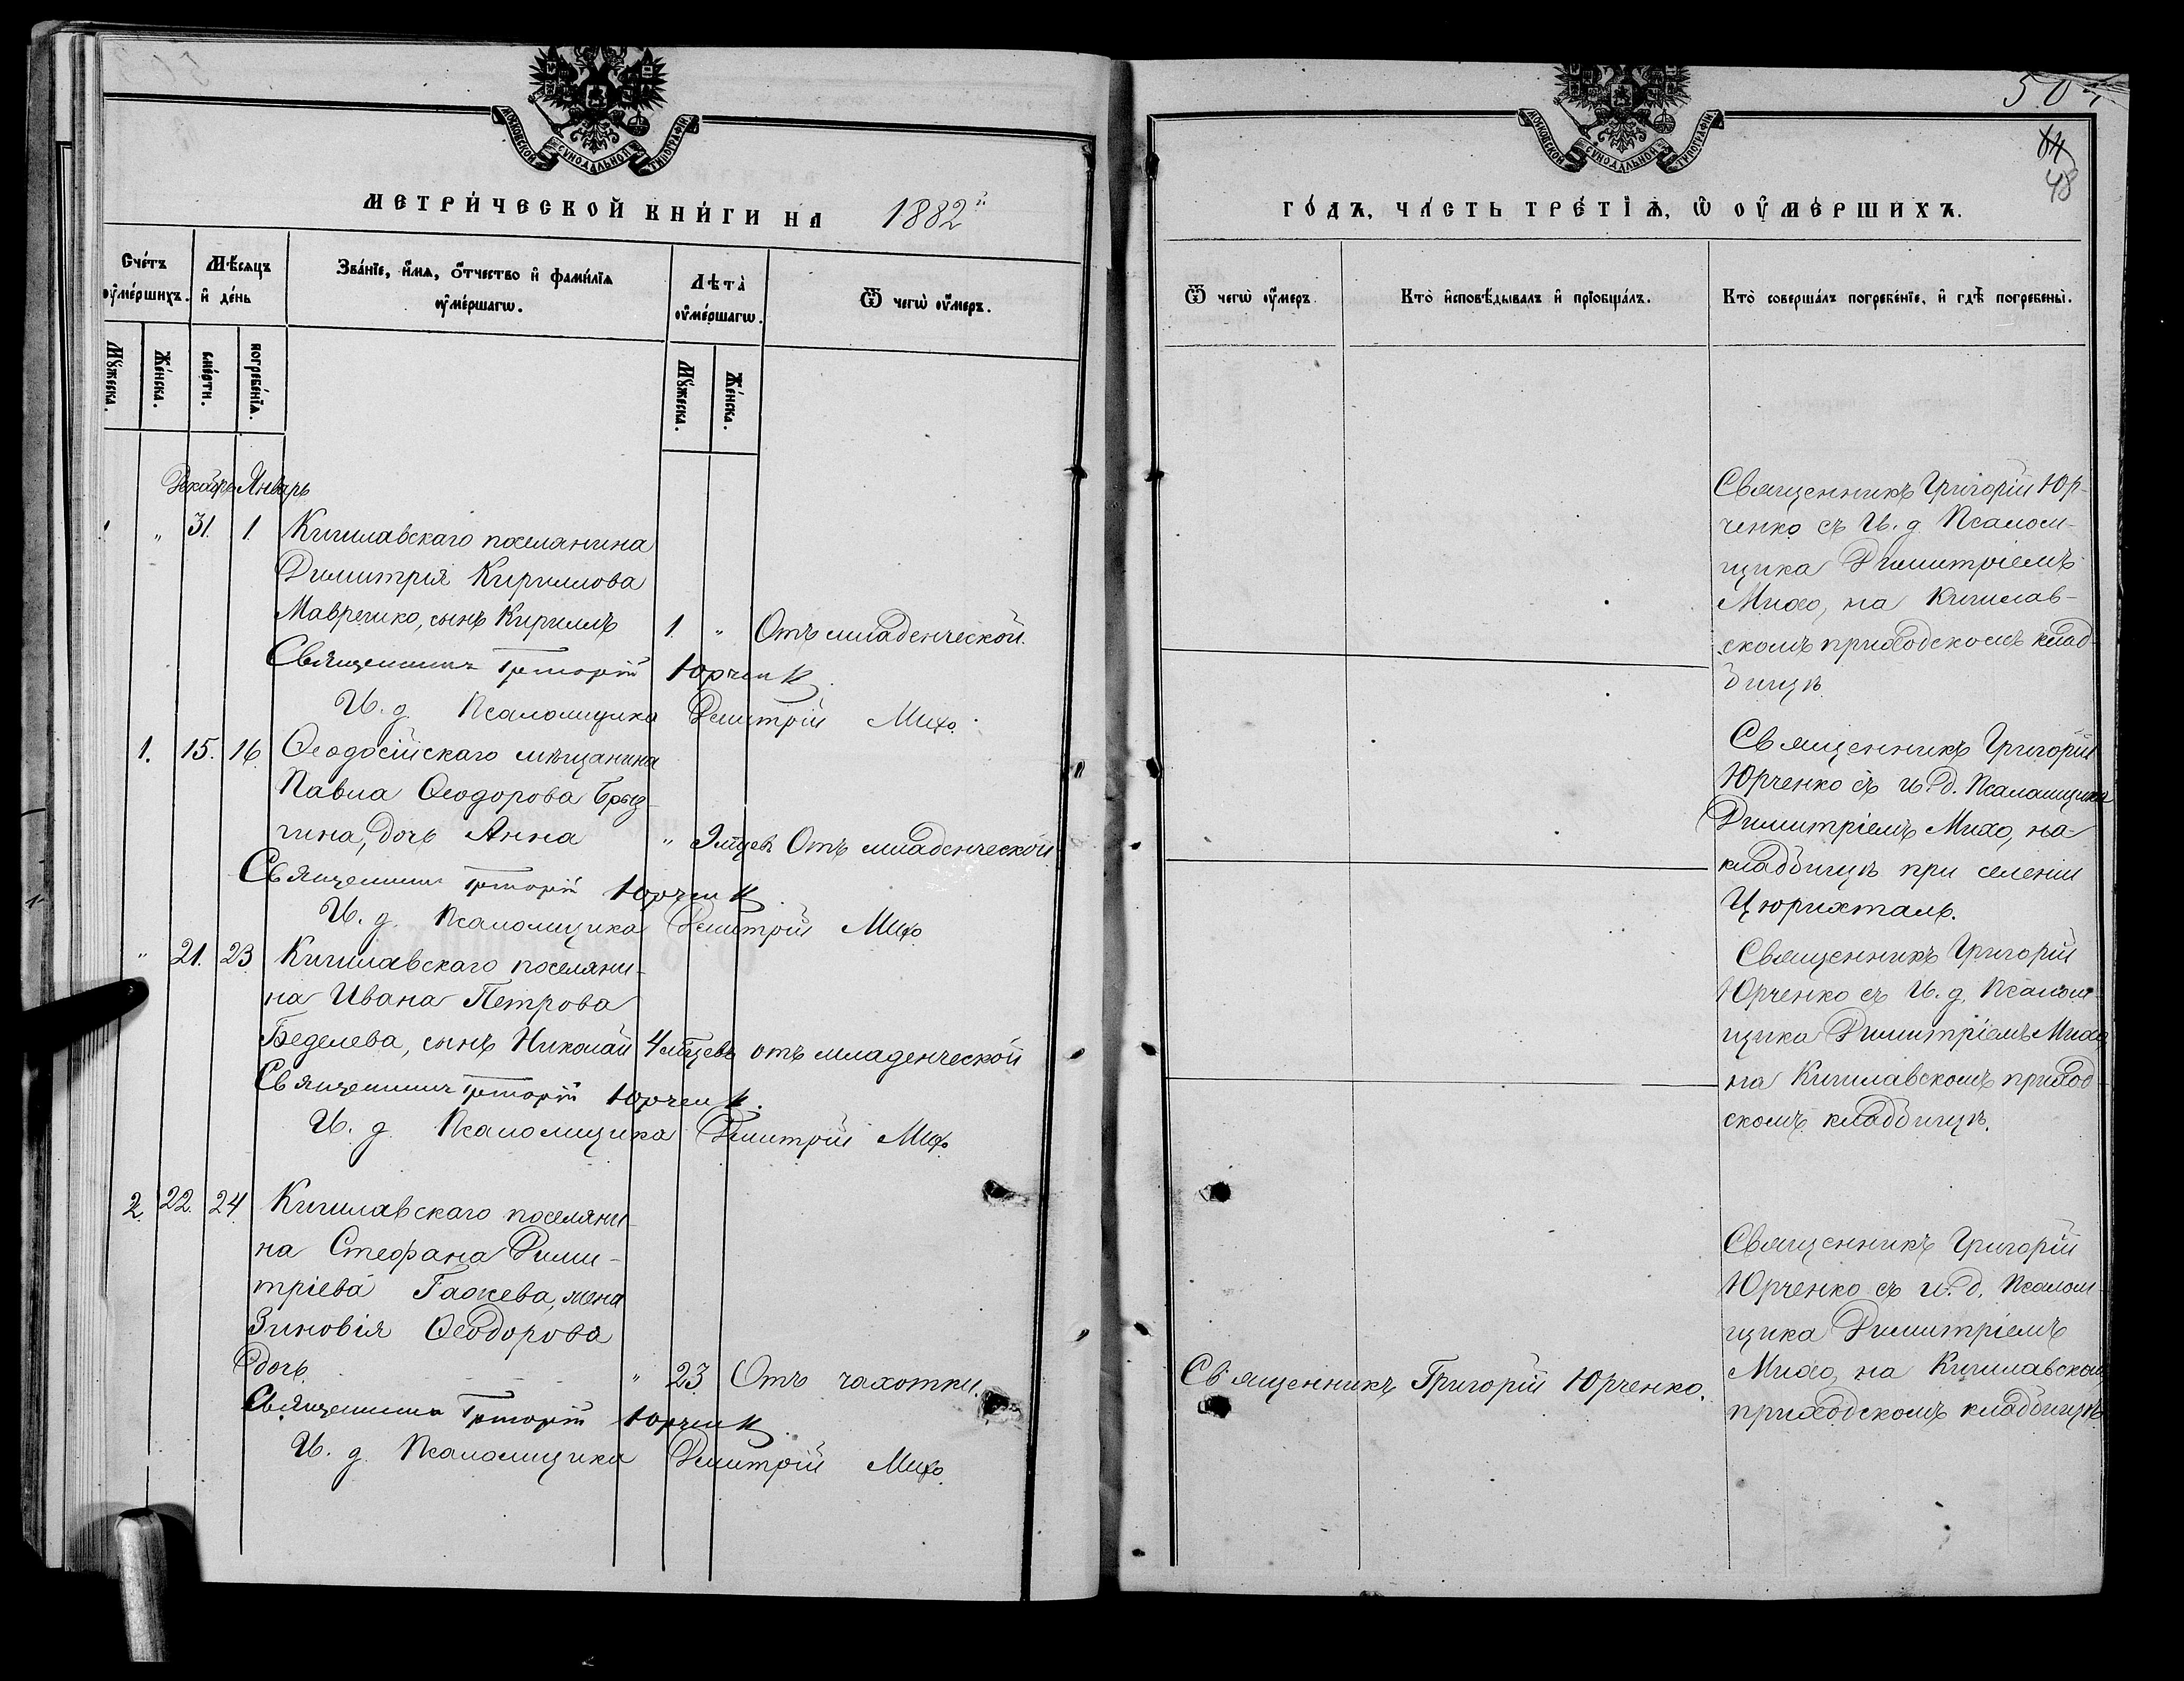 МОСКОВСКОЙ СѴНОДАЛЬНОЙ ТИПОГРАФІИ
МЕТРИ́ЧЕСКОЙ КНИ́ГИ НА 1882й
Сче́тъ оу҆ме́ршихъ.
Мѣ́сяцъ и҆ де́нь
Зва́нїе, и҆́мѧ, ѻ҆́тчество и҆ фами́лїѧ оу҆ме́ршагѡ.
Лѣта̀ оу҆ме́ршагѡ.
Ѿ чегѡ̀ оу҆́меръ.
Мꙋ́жеска.
Же́нска.
сме́рти.
погребе́нїѧ.
Мꙋ́жеска.
Же́нска.
Декабрь Январь
1 " 31. 1. Кишлавскаго поселянина
Димитрія Кириллова
Маврешко, сынъ Кириллъ 1. " Отъ младенческой
Священникъ Григорій Юрченко
И. д. Псаломщика Дмитрій Михо.
1. 15. 16. Ѳеодосійскаго мѣщанина
Павла Ѳеодорова Брыз-
гина, дочь Анна " 9 мѣцевъ Отъ младенческой
Священникъ Григорій Юрченко
И. д. Псаломщика Дмитрій Михо
" 21. 23. Кишлавскаго поселяни-
на Ивана Петрова
Беделева, сынъ Николай 4 мѣцевъ отъ младенческой
Священникъ Григорій Юрченко.
И. д. Псаломщика Дмитрій Михо
2. 22. 24. Кишлавскаго поселяни-
на Стефана Дими-
тріева Гаожева, жена
Зиновія Ѳеодорова
дочь. " 23. Отъ чахотки.
Священникъ Григорій Юрченко
И. д. Псаломщика Дмитрій Михо.
МОСКОВСКОЙ СѴНОДАЛЬНОЙ ТИПОГРАФІИ
48
ГО́ДЪ, ЧА́СТЬ ТРЕ́ТЇѦ, Ѡ҆ ОУ҆МЕ́РШИХЪ.
Ѿ чегѡ̀ оу҆́меръ.
Кто̀ и҆сповѣ́дывалъ и҆ прїобща́лъ.
Кто̀ соверша́лъ погребе́нїе, и҆ гдѣ̀ погребены̀.
Священникъ Григорій Юр-
ченко съ И. д. Псалом-
щика Димитріемъ
Михо, на Кишлав-
скомъ приходскомъ клад-
бищѣ
Священникъ Григорій
Юрченко съ и. д. Псаломщика
Димитріемъ Михо, на
кладбищѣ при селеніи
Цюрихталь.
Священникъ Григорій
Юрченко съ И. д. Псалом-
щика Димитріемъ Михо
на Кишлавскомъ приход-
скомъ кладбищѣ.
Священникъ Григорій
Юрченко съ и. д. Псалом-
щика Димитріемъ
Михо, на Кишлавском
приходскомъ кладбищѣ
Священникъ Григорій Юрченко.